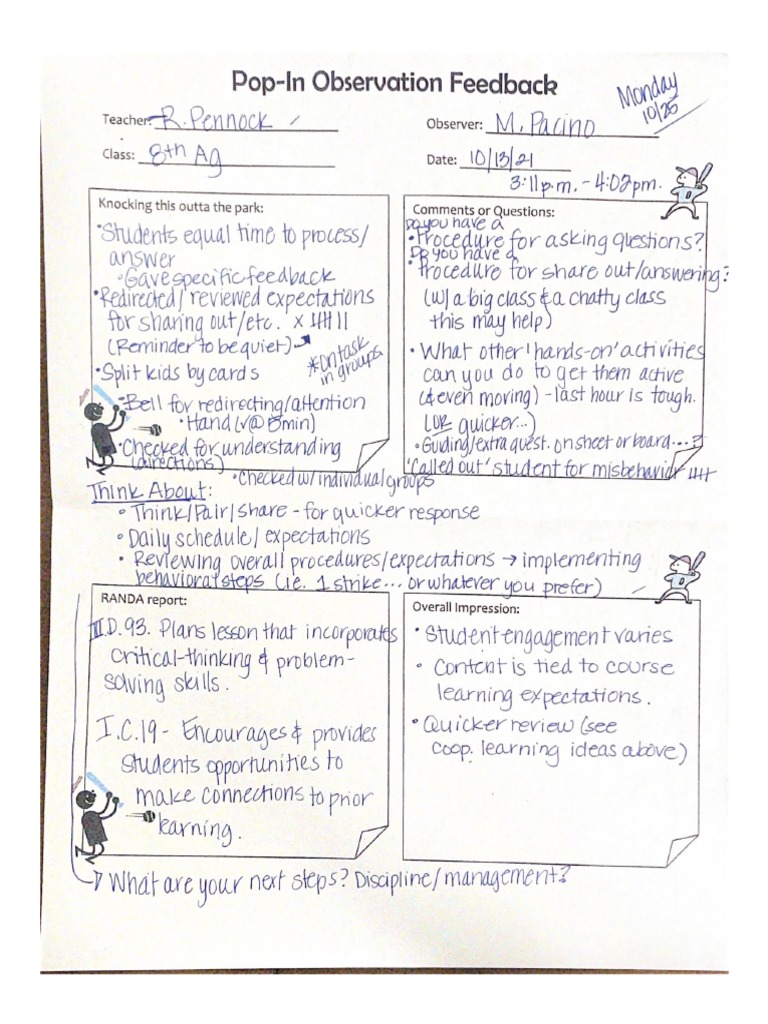 Pop-In Observation Feedback
Monday
10/25
Teacher: R. Pennock
Observer: M. Pacino
Class: 8th Ag
Date: 10/13/21
3:11p.m. - 4:02pm.
Knocking this outta the park:
• Students equal time to process/
answer
• Gave specific feedback
• Redirected/reviewed expectations
for sharing out/etc. x
(Reminder to be quiet)
*on task
in groups
• Split kids by cards
• Bell for redirecting/attention
• Hand (v@5min)
• Checked for understanding
(directions)
• Checked w/individual groups
Comments or Questions:
Do you have a
• Procedure for asking questions?
Do you have a
• Procedure for share out/answering?
(w/a big class & a chatty class
this may help)
• What other 'hands-on' activities
can you do to get them active
(& even moving) - last hour is tough.
quicker...)
• Guiding/extra quest. on sheet or board...?
'Called out' student for misbehavior
Think About:
• Think/Pair/share - for quicker response
• Daily schedule/expectations
• Reviewing overall procedures/expectations → implementing
behavioral steps (i.e. 1 strike... or whatever you prefer)
RANDA report:
III.D.93. Plans lesson that incorporates
critical-thinking & problem-
solving skills.
I.C.19 - Encourages & provides
students opportunities to
make connections to prior
learning.
Overall Impression:
• Student engagement varies
• Content is tied to course
learning expectations.
• Quicker review (see
coop. learning ideas above)
→ What are your next steps? Discipline/management?